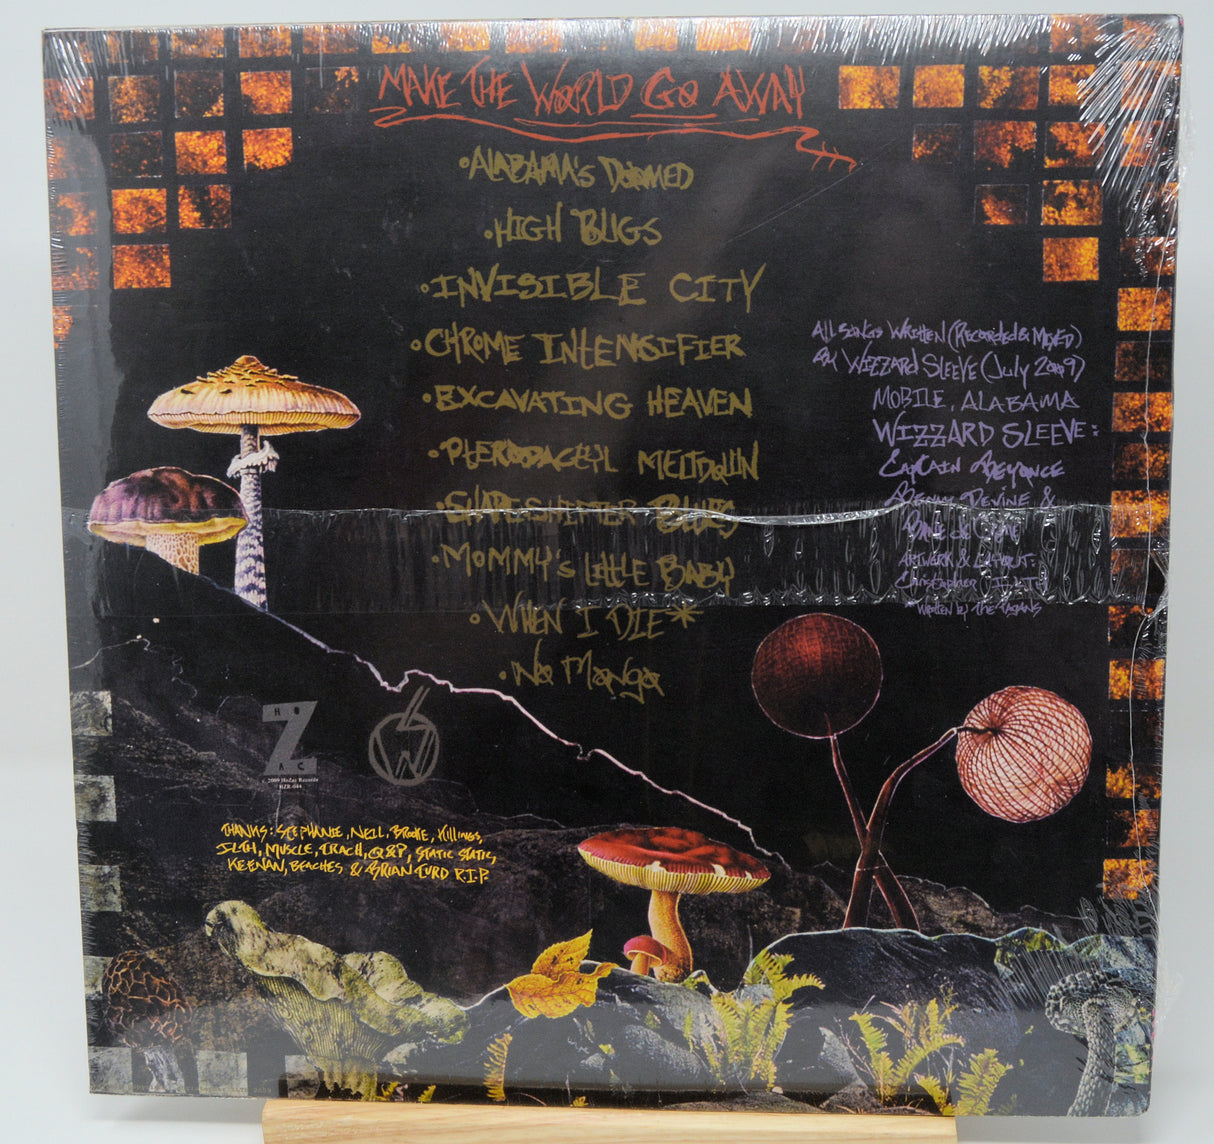 MAKE THE WORLD GO AWAY
•ALABAMA'S DOOMED
•HIGH BUGS
•INVISIBLE CITY
•CHROME INTENSIFIER
•EXCAVATING HEAVEN
•PTERODACTYL MELTDOWN
•SHAPESHIFTER BLUES
•MOMMY'S LITTLE BABY
•WHEN I DIE*
•No Monga
ALL SONGS WRITTEN (RECORDED & MIXED)
BY WIZZARD SLEEVE (JULY 2009)
MOBILE, ALABAMA
WIZZARD SLEEVE:
CAPTAIN BEYONCE
DEVINE &
ARTWORK & LAYOUT:
CHRISTOPHER
*WRITTEN by THE PAGANS
HO
Z
AC
2009 HoZac Records
HZR-044
SW
THANKS: STEPHANIE, NEIL, BROOKE, KILLINGS,
JLTH, MUSCLE, TRACH, Q&P, STATIC STATIC,
KEENAN, BEACHES & BRIAN TURD R.I.P.